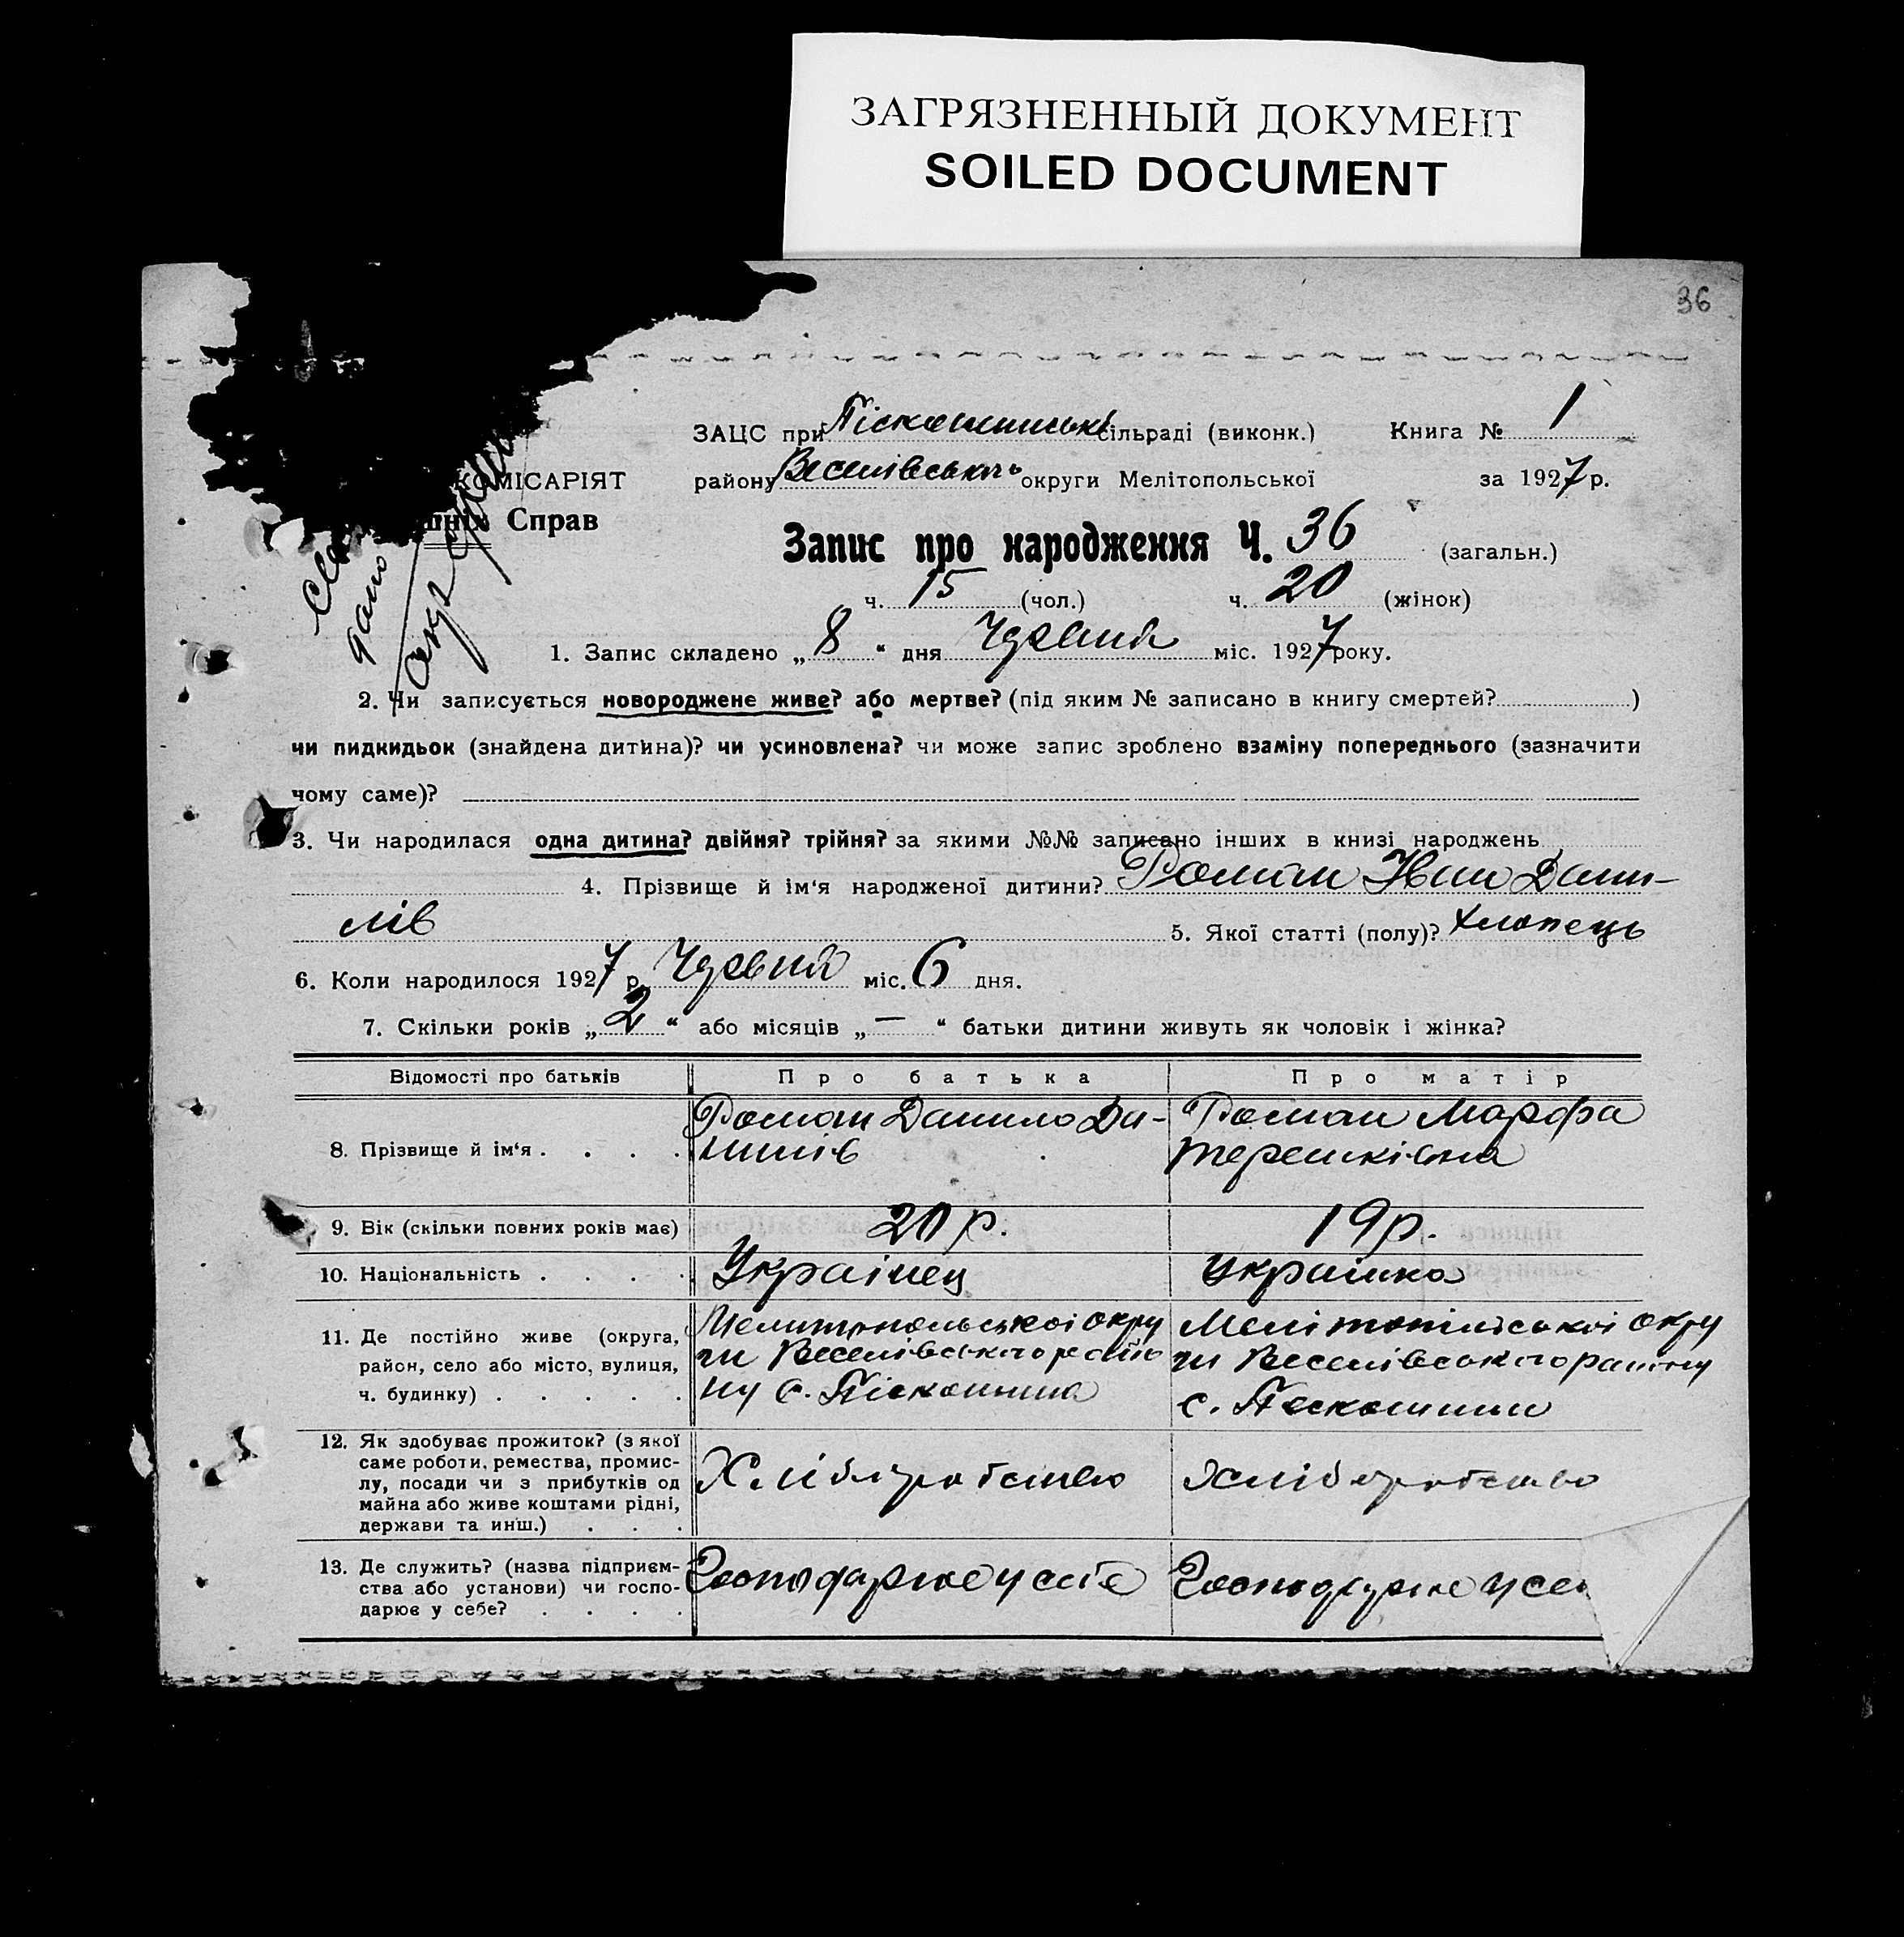 ЗАГРЯЗНЕННЫЙ ДОКУМЕНТ
SOILED DOCUMENT
36
ЗАЦС при Піскошинські сільраді (виконк.) Книга № 1
КОМІСАРІЯТ району Веселівського округи Мелітопольської за 1927 р.
Справ
Запис про народження Ч. 36 (загальн.)
ч. 15 (чол.) ч. 20 (жінок)
дано
1. Запис складено „8“ дня Червня міс. 1927 року.
2. Чи записується новороджене живе? або мертве? (під яким № записано в книгу смертей? )
чи пидкидьок (знайдена дитина)? чи усиновлена? чи може запис зроблено взаміну попереднього (зазначити
чому саме)?
3. Чи народилася одна дитина? двійня? трійня? за якими №№ записано інших в книзі народжень
4. Прізвище й ім‘я народженої дитини? Роман Іван Дани-
лів
5. Якої статті (полу)? хлопець
6. Коли народилося 1927 р. Червня міс. 6 дня.
7. Скільки років „2“ або місяців „—“ батьки дитини живуть як чоловік і жінка?
Відомості про батьків Про батька Про матір
8. Прізвище й ім‘я . . . . Роман Данило Роман Марфа
Терешківна
9. Вік (скільки повних років має) 20 р. 19 р.
10. Національність . . . . Українец Українка
11. Де постійно живе (округа, Мелитопольської окру Мелітопільської окру
район, село або місто, вулиця, ги Веселівського райо ги Веселівського району
ч. будинку) . . . . . ну с. Піскошина с. Пескошини
12. Як здобуває прожиток? (з якої
саме роботи, ремества, промис-
лу, посади чи з прибутків од Хліборобство хліборобство
майна або живе коштами рідні,
держави та инш.) . . .
13. Де служить? (назва підприєм- Господарює у себе Господарює у се
ства або установи) чи госпо-
дарює у себе? . . . .